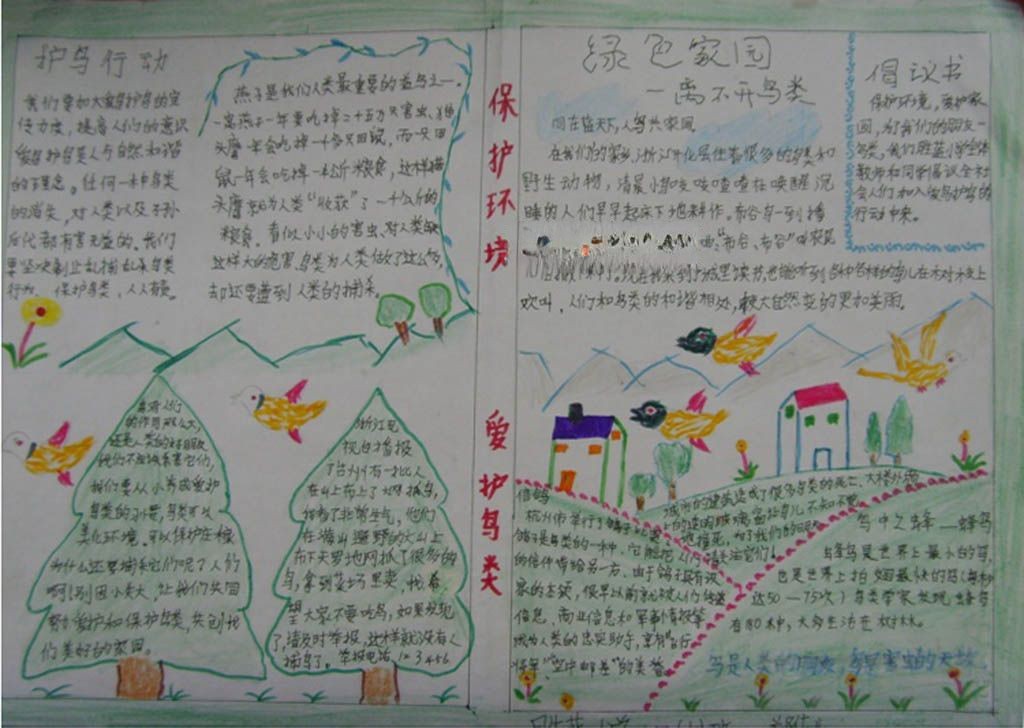 护鸟行动
我们要加大爱鸟护鸟的宣
传力度，提高人们的意识
爱鸟护鸟是人与自然和谐
的理念。任何一种鸟类
的消失，对人类以及子孙
后代都有害无益的。我们
要坚决制止乱捕乱杀鸟类
行为，保护鸟类，人人有责。
燕子是我们人类最重要的益鸟之一。
一窝燕子一年要吃掉二十五万只害虫、猫
头鹰一年会吃掉一千多只田鼠，而一只田
鼠一年会吃掉一公斤粮食，这样猫
头鹰就为人类“收获”了一千公斤的
粮食。看似小小的害虫对人类
这样大的危害，鸟类为人类做了这么多，
却还要遭到人类的捕杀。
保护环境 爱护鸟类
绿色家园
——离不开鸟类
同在蓝天下，人鸟共家园。
在我们的家乡，浙江 住着很多的鸟类和
野生动物，清晨小鸟吱吱喳喳在唤醒沉
睡的人们早早起床下地耕作。布谷鸟一到播
“布谷、布谷”叫农民
城里读书，也能听到各种各样的鸟儿在不对木支上
欢叫，人们和鸟类的和谐相处，较大自然变的更加美丽。
倡议书
保护环境，爱护家
园，为了我们的朋友——
鸟类，我们 小学全体
教师和同学倡议全社
会人们加入爱鸟护鸟的
行动中来。
鸟类 人们
的作用那么大，
还是人类的好朋友
我们不应该杀害它们，
我们要从小养成爱护
鸟类的习惯，鸟类可以
美化环境。可以保护庄稼
为什么还要捕杀它们呢？人们
啊！别因小失大，让我们共同
努力爱护和保护鸟类，共创我
们美好的家园。
浙江电
视台播报
了台州有一批人
在山上布上了大网抓鸟，
我看了非常生气，他们
在满山遍野的大山上
布下天罗地网抓了很多的
鸟，拿到菜场里卖，我希
望大家不要吃鸟，如果发现
了请及时举报，这样就没有人
捕鸟了。举报电话123456
信鸽
杭州市举行了鸽子比赛
鸽子是鸟类的一种，它能把人们
的信件带给另一方、由于鸽子
家的本领，很早以前就被人们传递
信息，商业信息和军事情报等
成为人类的忠实助手，享有“飞行
“空中邮差”的美誉。
城市的建筑造成了很多鸟类的死亡、大楼外墙
上的玻璃窗让鸟儿不知不觉
撞死，为了我们的朋友
请关注它们！
鸟中之蜂——蜂鸟
蜂鸟是世界上最小的鸟，
也是世界上拍翅最快的鸟（每秒
达50—75次）鸟类学家发现蜂鸟
有80种，大多生活在树林。
鸟是人类的朋友，鸟是害虫的天敌